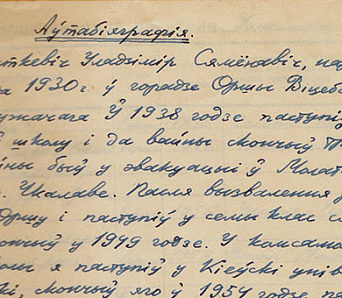 Аўтабіяграфія.
ткевіч Уладзімір Сямёнавіч, на
1930 г. у горадзе Оршы Віцеб
ужачага Ў 1938 годзе паступіў
школу і да вайны скончыў
ны быў у эвакуацыі ў Молат
Укалаве. Пасля вызвалення
Оршу і паступіў у семы клас с
ончыў у 1949 годзе. У комсамо
я паступіў у Кіеўскі унів
скі, скончыў яго ў 1954 годзе